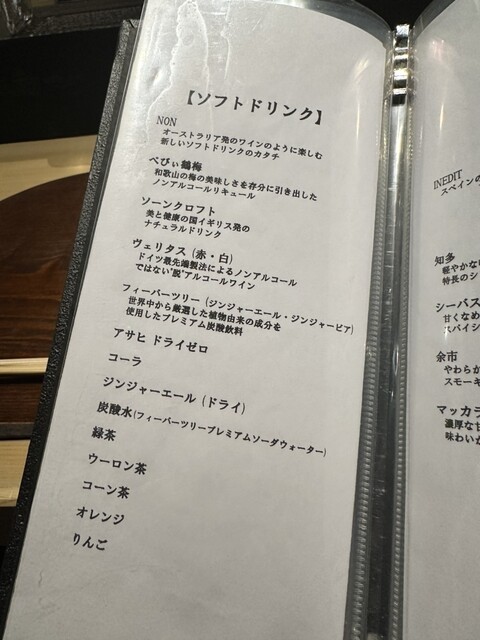 【ソフトドリンク】
NON
オーストラリア発のワインのように楽しむ
新しいソフトドリンクのカタチ
べびぃ鶴梅
和歌山の梅の美味しさを存分に引き出した
ノンアルコールリキュール
ソーンクロフト
美と健康の国イギリス発の
ナチュラルドリンク
ヴェリタス (赤・白)
ドイツ最先端製法によるノンアルコール
ではない"脱"アルコールワイン
フィーバーツリー (ジンジャーエール・ジンジャービア)
世界中から厳選した植物由来の成分を
使用したプレミアム炭酸飲料
アサヒ ドライゼロ
コーラ
ジンジャーエール (ドライ)
炭酸水(フィーバーツリープレミアムソーダウォーター)
緑茶
ウーロン茶
コーン茶
オレンジ
りんご
INEDIT
スペインの
知多
軽やかな
特長のシ
シーバス
甘くなめ
スパイシ
余市
やわらか
スモーキ
マッカラ
濃厚な甘
味わいか